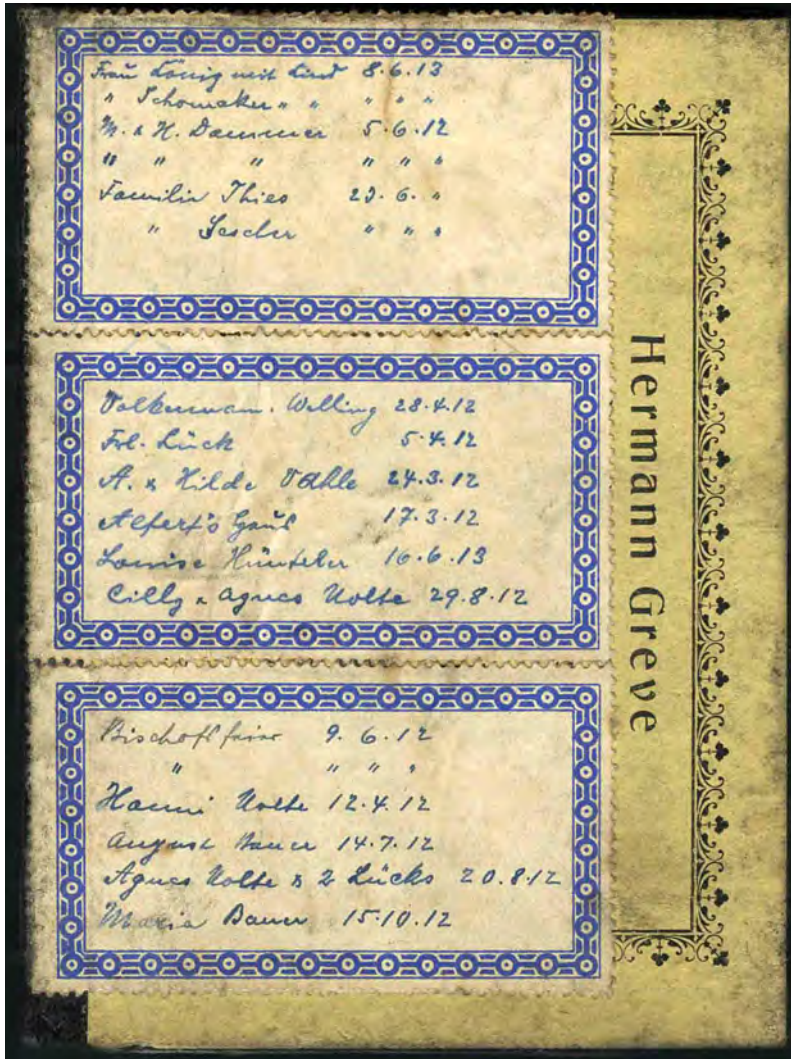 Frau König mit Kind 8.6.13
" Schomaker " " " " "
M. & H. Dammer 5.6.12
" " " " " "
Familie Thies 23.6. "
" Lescher " " "
Volkermann. Welling 28.4.12
Frl. Lück 5.4.12
A. & Hilde Vahle 24.3.12
Alfert's Haus 17.3.12
Louise Hünteler 16.6.13
Cilly & Agnes Nolte 29.8.12
Bischofsfeier 9.6.12
" " " "
Hanni Nolte 12.4.12
August Bauer 14.7.12
Agnes Nolte & 2 Lücks 20.8.12
Maria Bauer 15.10.12
Hermann Greve